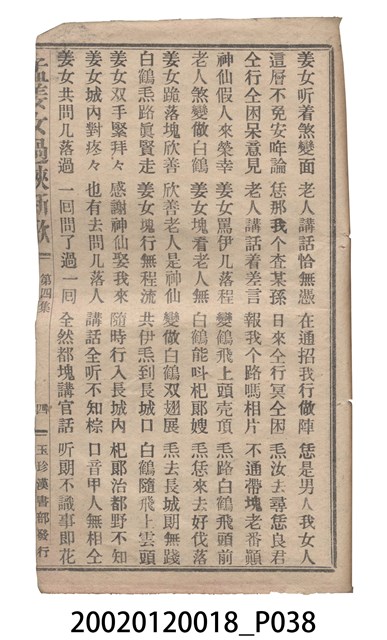 姜女听着煞變面　老人講話恰無憑　在通招我行做陣　恁是男人我女人
這層不免安咋論　恁那我个查某孫　日來仝行冥仝困　𤆬汝去尋恁良君
仝行仝困呆意見　老人講話着差言　報我个路嗎相片　不通帶塊老番顛
神仙假人來榮幸　姜女罵伊几落程　變鶴飛上頭壳頂　𤆬路白鶴飛頭前
老人煞變做白鶴　姜女塊看老人無　白鶴能呌杞郎嫂　𤆬恁來去好伐落
姜女跪落塊欣善　欣善老人是神仙　變做白鶴双翅展　𤆬去長城卽無踐
白鶴𤆬路眞賢走　姜女塊行無程流　共伊𤆬到長城口　白鶴隨飛上雲頭
姜女双手緊拜々　感謝神仙娶我來　隨時行入長城內　杞郎治都野不知
姜女城內對疼々　也有去問几落人　講話全听不知棕　口音甲人無相仝
姜女共問几落過　一囘問了過一囘　全然都塊講官話　听朗不識事卽花
孟姜女過峽新歌　第四集　四　玉珍漢書部發行
20020120018_P038